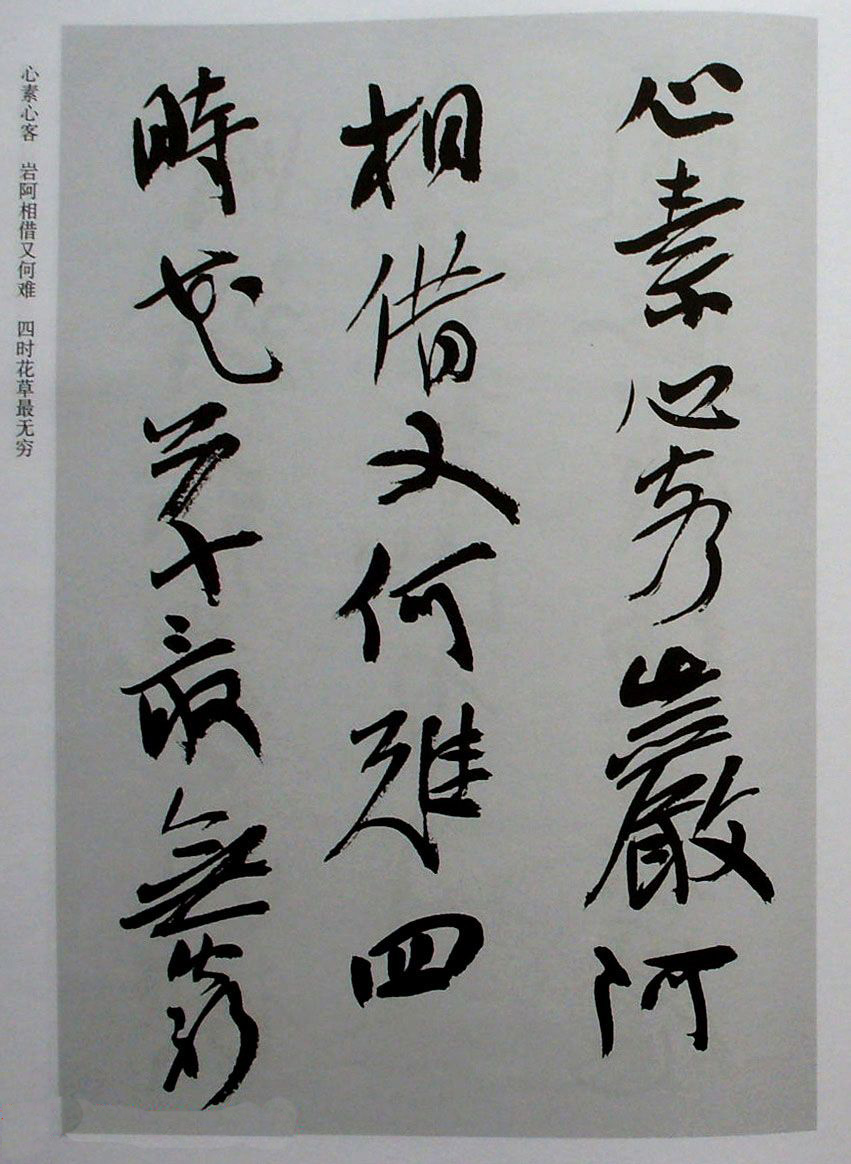 心素心巖阿
相借又何难四
時花草最無窮
心素心客 岩阿相借又何难 四时花草最无穷